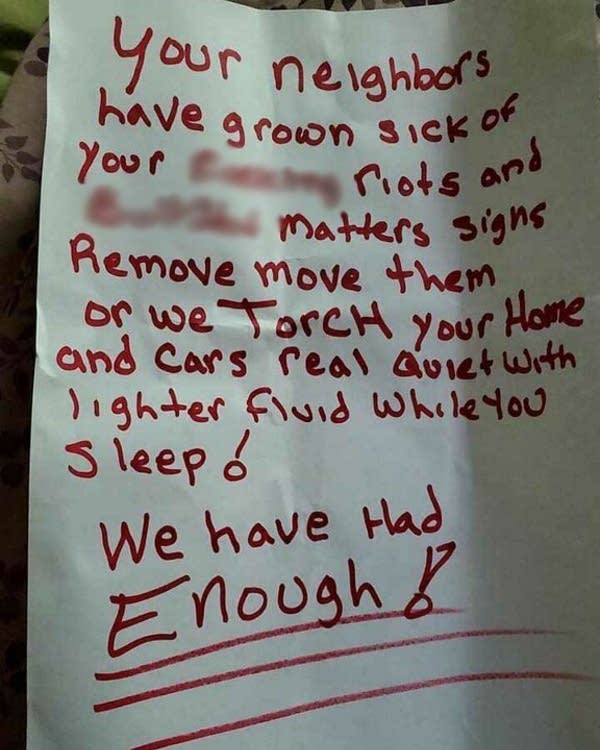 Your neighbors
have grown sick of
your riots and
matters signs
Remove move them
or we Torch your Home
and Cars real Quiet with
lighter fluid while you
Sleep!
We have Had
Enough!